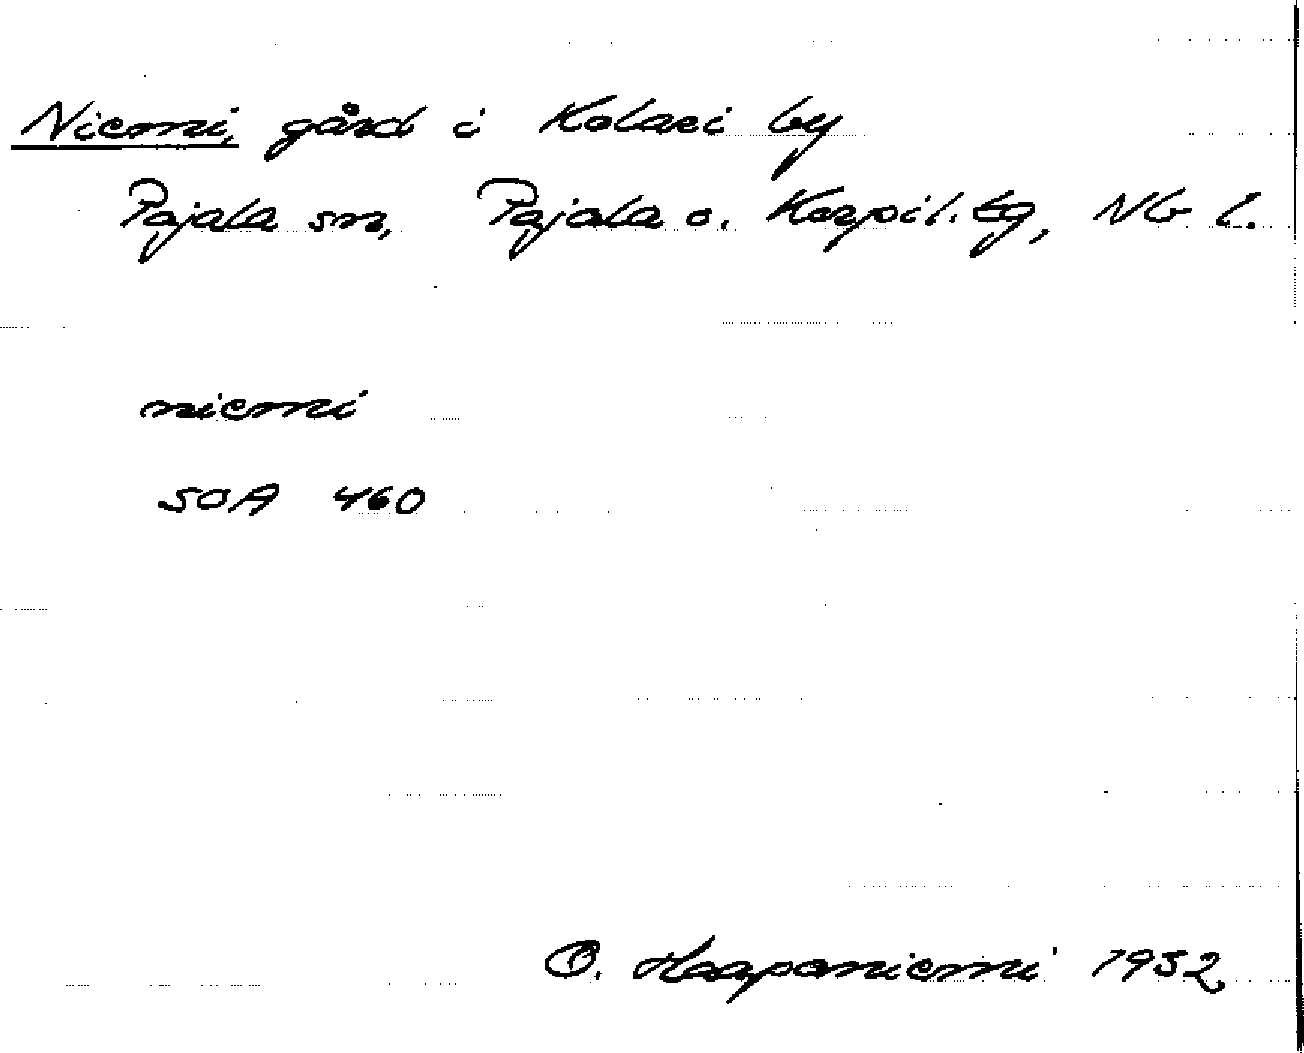 Niemi, gård i Kolari by
Pajala sn, Pajala o. Korpil. tg, Nb l.
niemi
SOA 460
O. Haapaniemi 1952